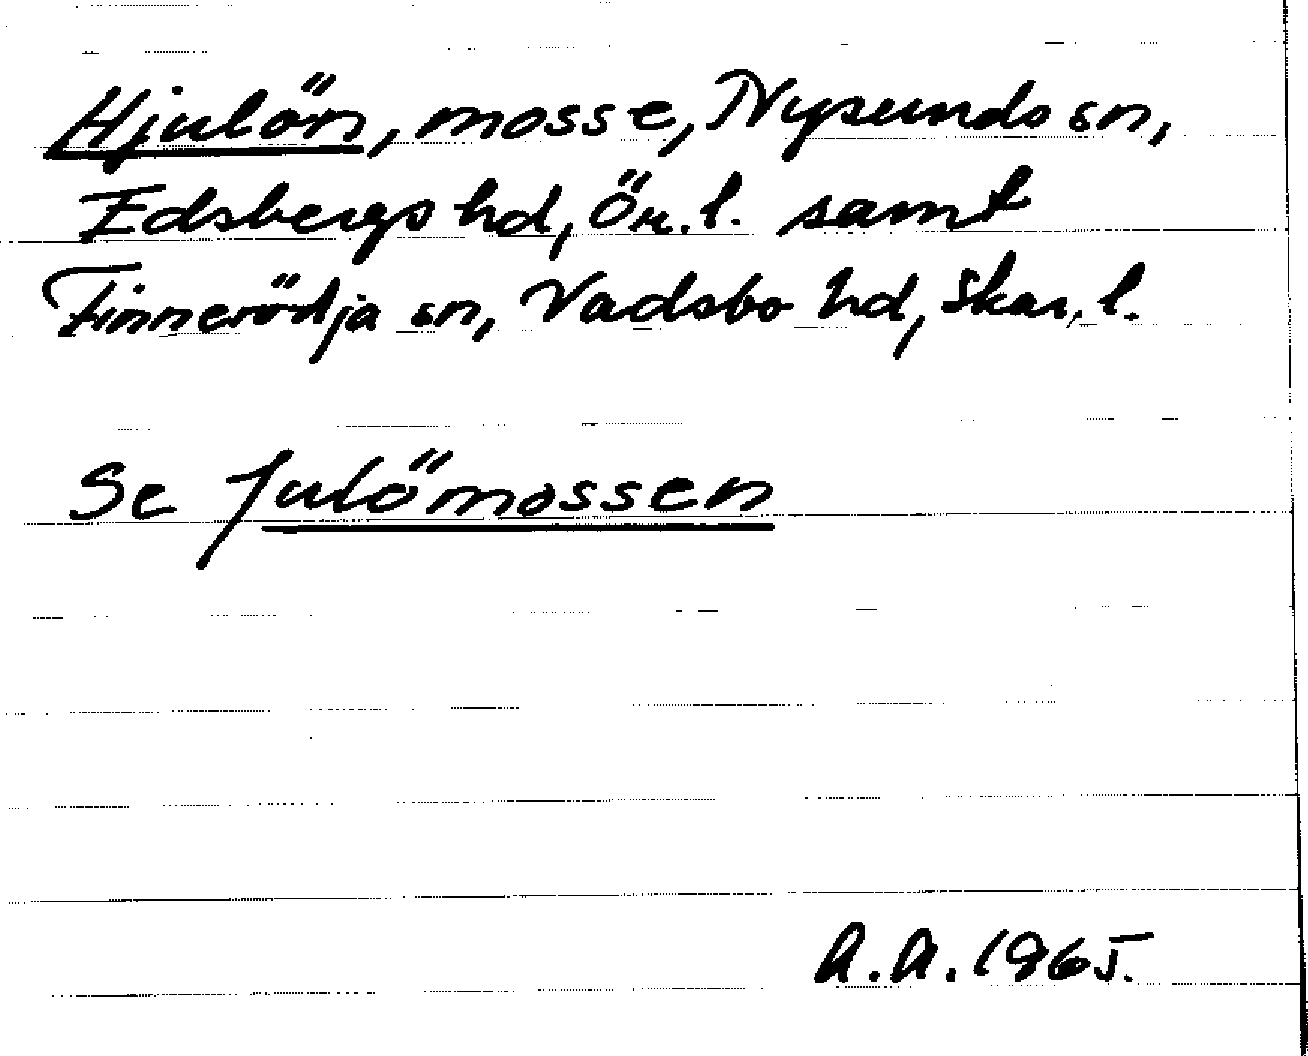 Hjulön, mosse, Nysunds sn,
Edsbergs hd, Ör. l. samt
Finnerödja sn, Vadsbo hd, Skar. l.
Se Julömossen
A.A. 1965.